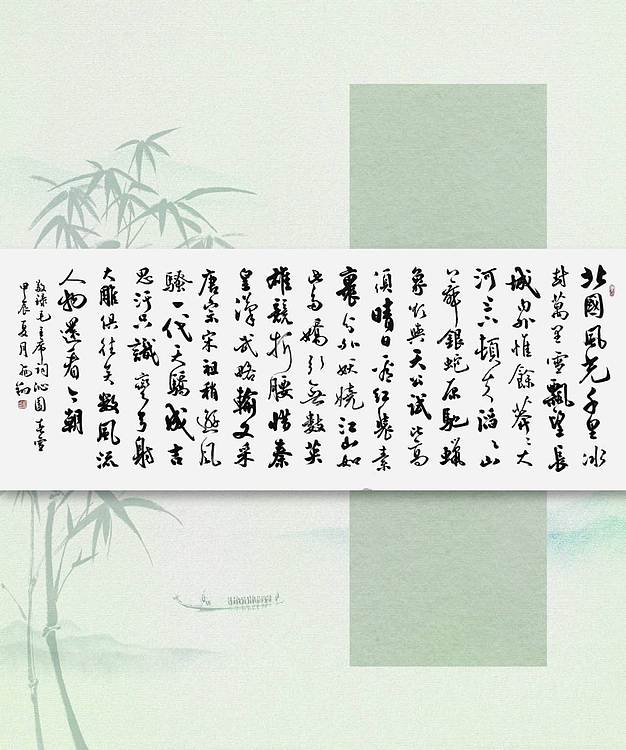 北國風光千里冰
封萬里雪飄望長
城內外惟餘莽莽大
河上下頓失滔滔山
舞銀蛇原馳蠟
象欲與天公試比高
須晴日看紅裝素
裹分外妖嬈江山如
此多嬌引無數英
雄競折腰惜秦
皇漢武略輸文采
唐宗宋祖稍遜風
騷一代天驕成吉
思汗只識彎弓射
大雕俱往矣數風流
人物還看今朝
敬錄毛主席詞沁園春雪
甲辰夏月